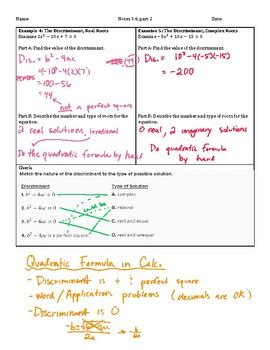 Name: Notes 3.6, part 2 Date
Example 4: The Discriminant, Real Roots
Examine 2x² − 10x + 7 = 0
Part A: Find the value of the discriminant.
Dis. = b² − 4ac
= (-10)² − 4(2)(7)
= 100 − 56
= 44
not a perfect square
Part B: Describe the number and type of roots for the equation.
2 real solutions, irrational
Do the quadratic formula by hand
Example 5: The Discriminant, Complex Roots
Examine −5x² + 10x − 15 = 0
Part A: Find the value of the discriminant.
Dis = 10² − 4(-5)(-15)
= -200
Part B: Describe the number and type of roots for the equation.
0 real, 2 imaginary solutions
Do quadratic formula by hand
Check
Match the nature of the discriminant to the type of possible solution.
Discriminant Type of Solution
1. b² − 4ac < 0 A. complex
2. b² − 4ac = 0 B. rational
3. b² − 4ac > 0 C. real and equal
4. b² − 4ac is a perfect square. D. real and unequal
Quadratic Formula in Calc.
- Discriminant is + & perfect square
- Word/Application problems (decimals are OK)
- Discriminant is 0